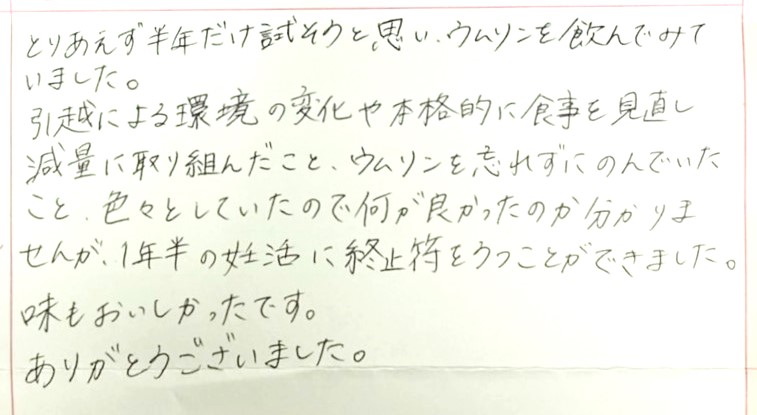 とりあえず半年だけ試そうと思い、ウムリンを飲んでみて
いました。
引越による環境の変化や本格的に食事を見直し
減量に取り組んだこと、ウムリンを忘れずにのんでいた
こと、色々としていたので何が良かったのか分かりま
せんが、1年半の妊活に終止符をうつことができました。
味もおいしかったです。
ありがとうございました。